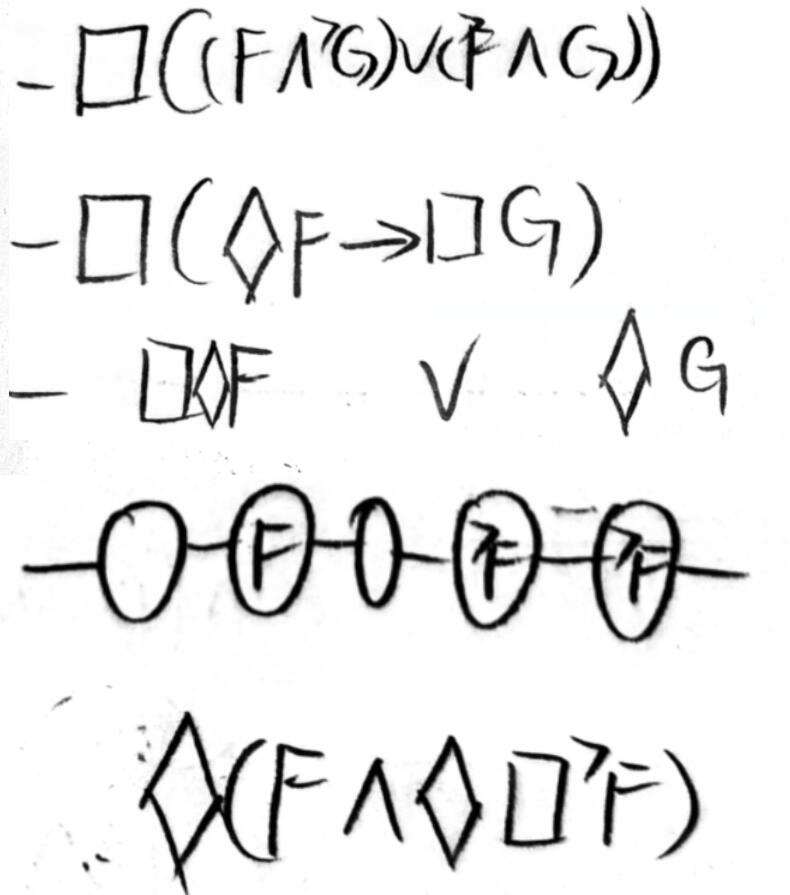 - □((F∧¬G)∨(¬F∧G))
- □(◇F→□G)
- □◇F ∨ ◇G
F ¬F ¬F
◇(F∧◇□¬F)